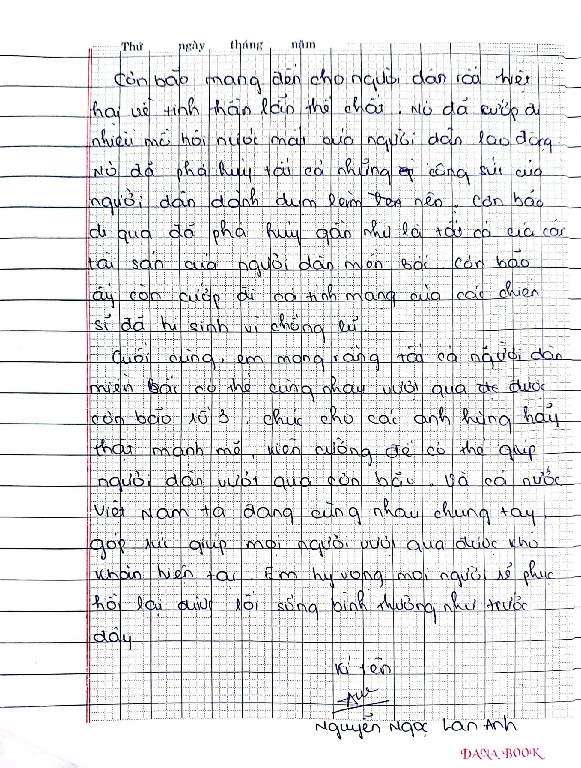 Thứ ngày tháng năm
Cơn bão mang đến cho người dân rất thiệt
hại về tinh thần lẫn thể chất. Nó đã cướp đi
nhiều mồ hôi nước mắt của người dân lao động
Nó đã phá hủy tất cả những công sức của
người dân dành dụm làm nên. Cơn bão
đi qua đã phá hủy gần như là tất cả của các
tài sản của người dân miền Bắc. Cơn bão
ấy còn cướp đi cả tính mạng của các chiến
sĩ đã hi sinh vì chống lũ.
Cuối cùng, em mong rằng tất cả người dân
miền Bắc có thể cùng nhau vượt qua được
cơn bão số 3. Chúc cho các anh hùng hãy
thật mạnh mẽ, kiên cường để có thể giúp
người dân vượt qua cơn bão. Và cả nước
Việt Nam ta đang cùng nhau chung tay,
góp sức giúp mọi người vượt qua được khó
khăn hiện tại. Em hy vọng mọi người sẽ phục
hồi lại được lối sống bình thường như trước
đây
Kí tên
Anh
Nguyễn Ngọc Lan Anh
DANA BOOK